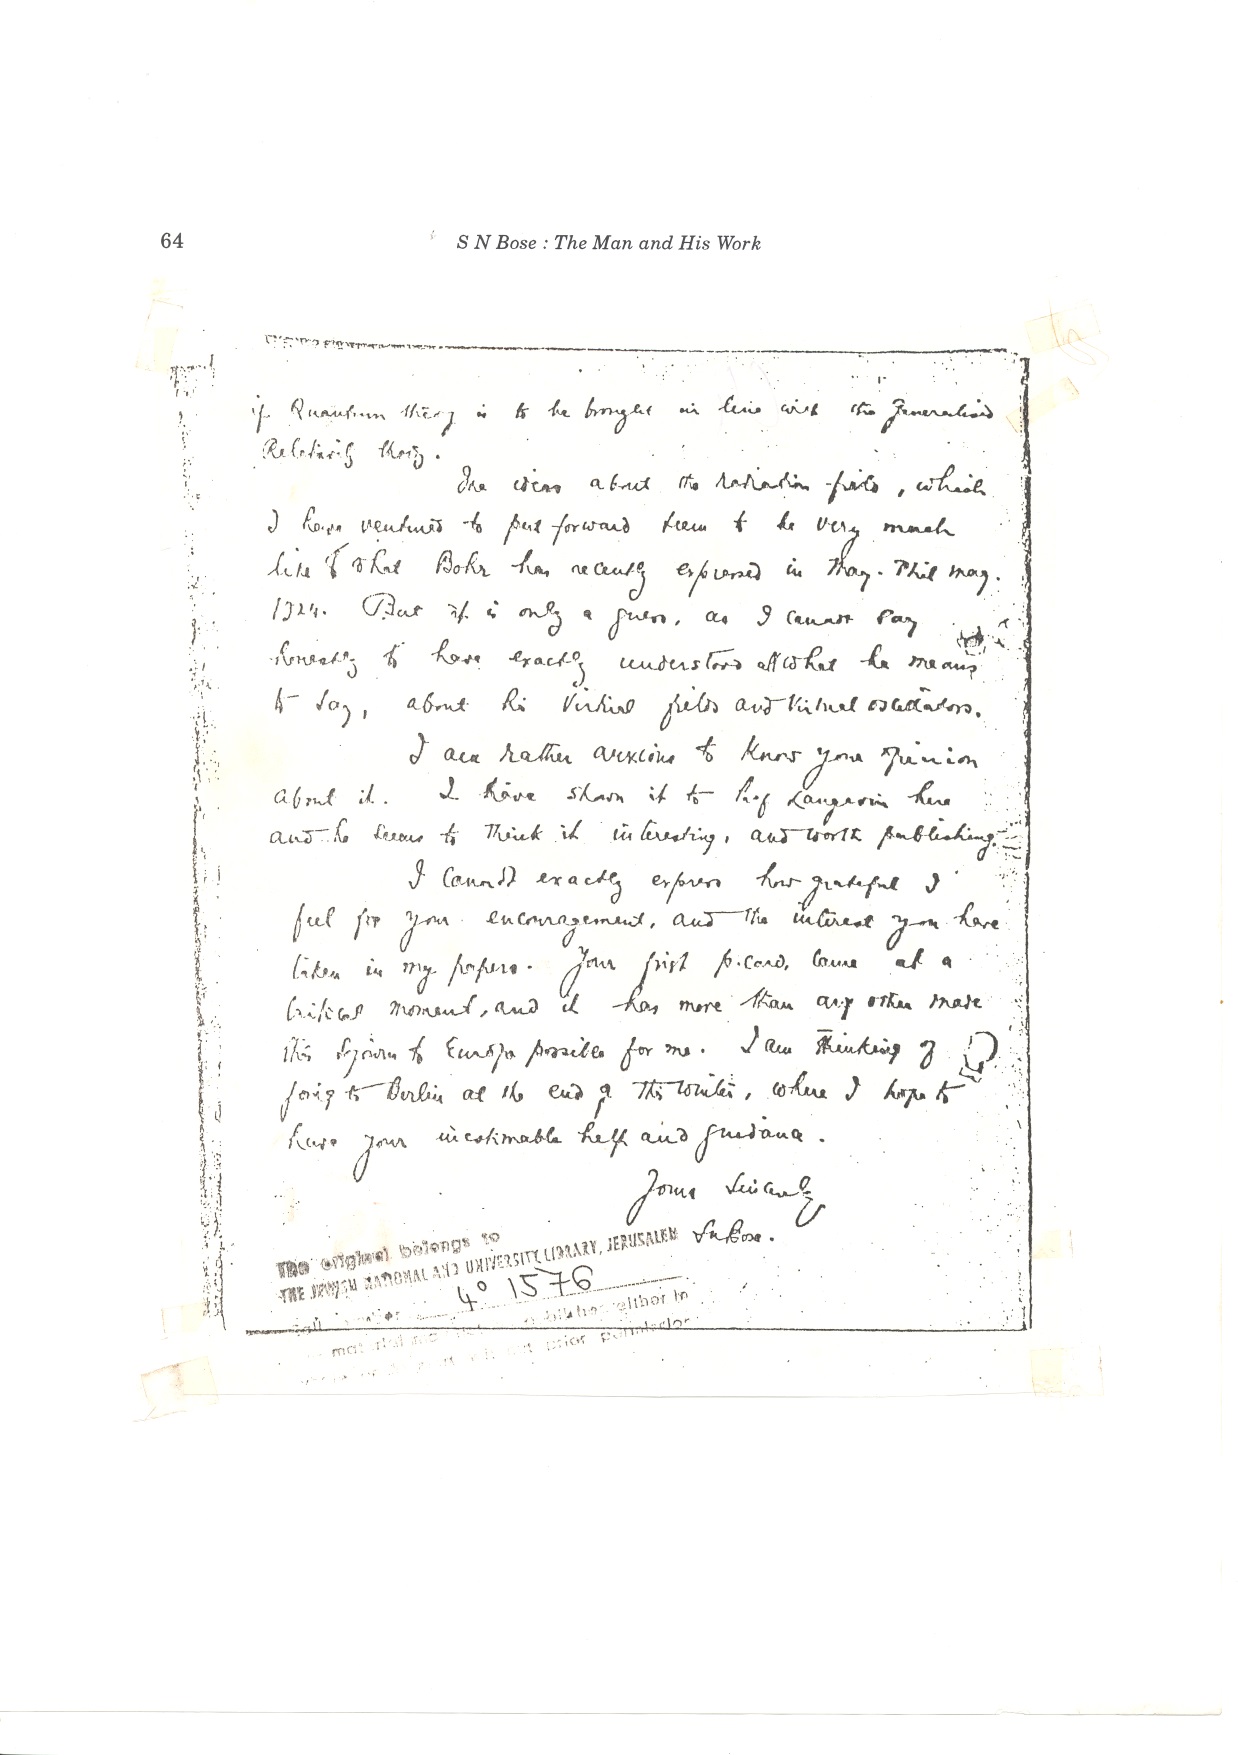 64
S N Bose : The Man and His Work
if Quantum theory is to be brought in line with the Generalised
Relativity theory.
The ideas about the radiation field, which
I have ventured to put forward seem to be very much
like what Bohr has recently expressed in May. Phil mag.
1924. But it is only a guess, as I cannot say
honestly to have exactly understood all what he means
to say, about his virtual fields and virtual oscillators.
I am rather anxious to know your opinion
about it. I have shown it to Prof Langevin here
and he seems to think it interesting, and worth publishing.
I cannot exactly express how grateful I
feel for your encouragement, and the interest you have
taken in my papers. Your first p.card, came at a
critical moment, and it has more than any other made
this sojourn to Europe possible for me. I am thinking of
going to Berlin at the end of this winter, where I hope to
have your inestimable help and guidance.
Yours Sincerely
SnBose.
The original belongs to
THE JEWISH NATIONAL AND UNIVERSITY LIBRARY, JERUSALEM
4° 1576
either in
material
prior permission